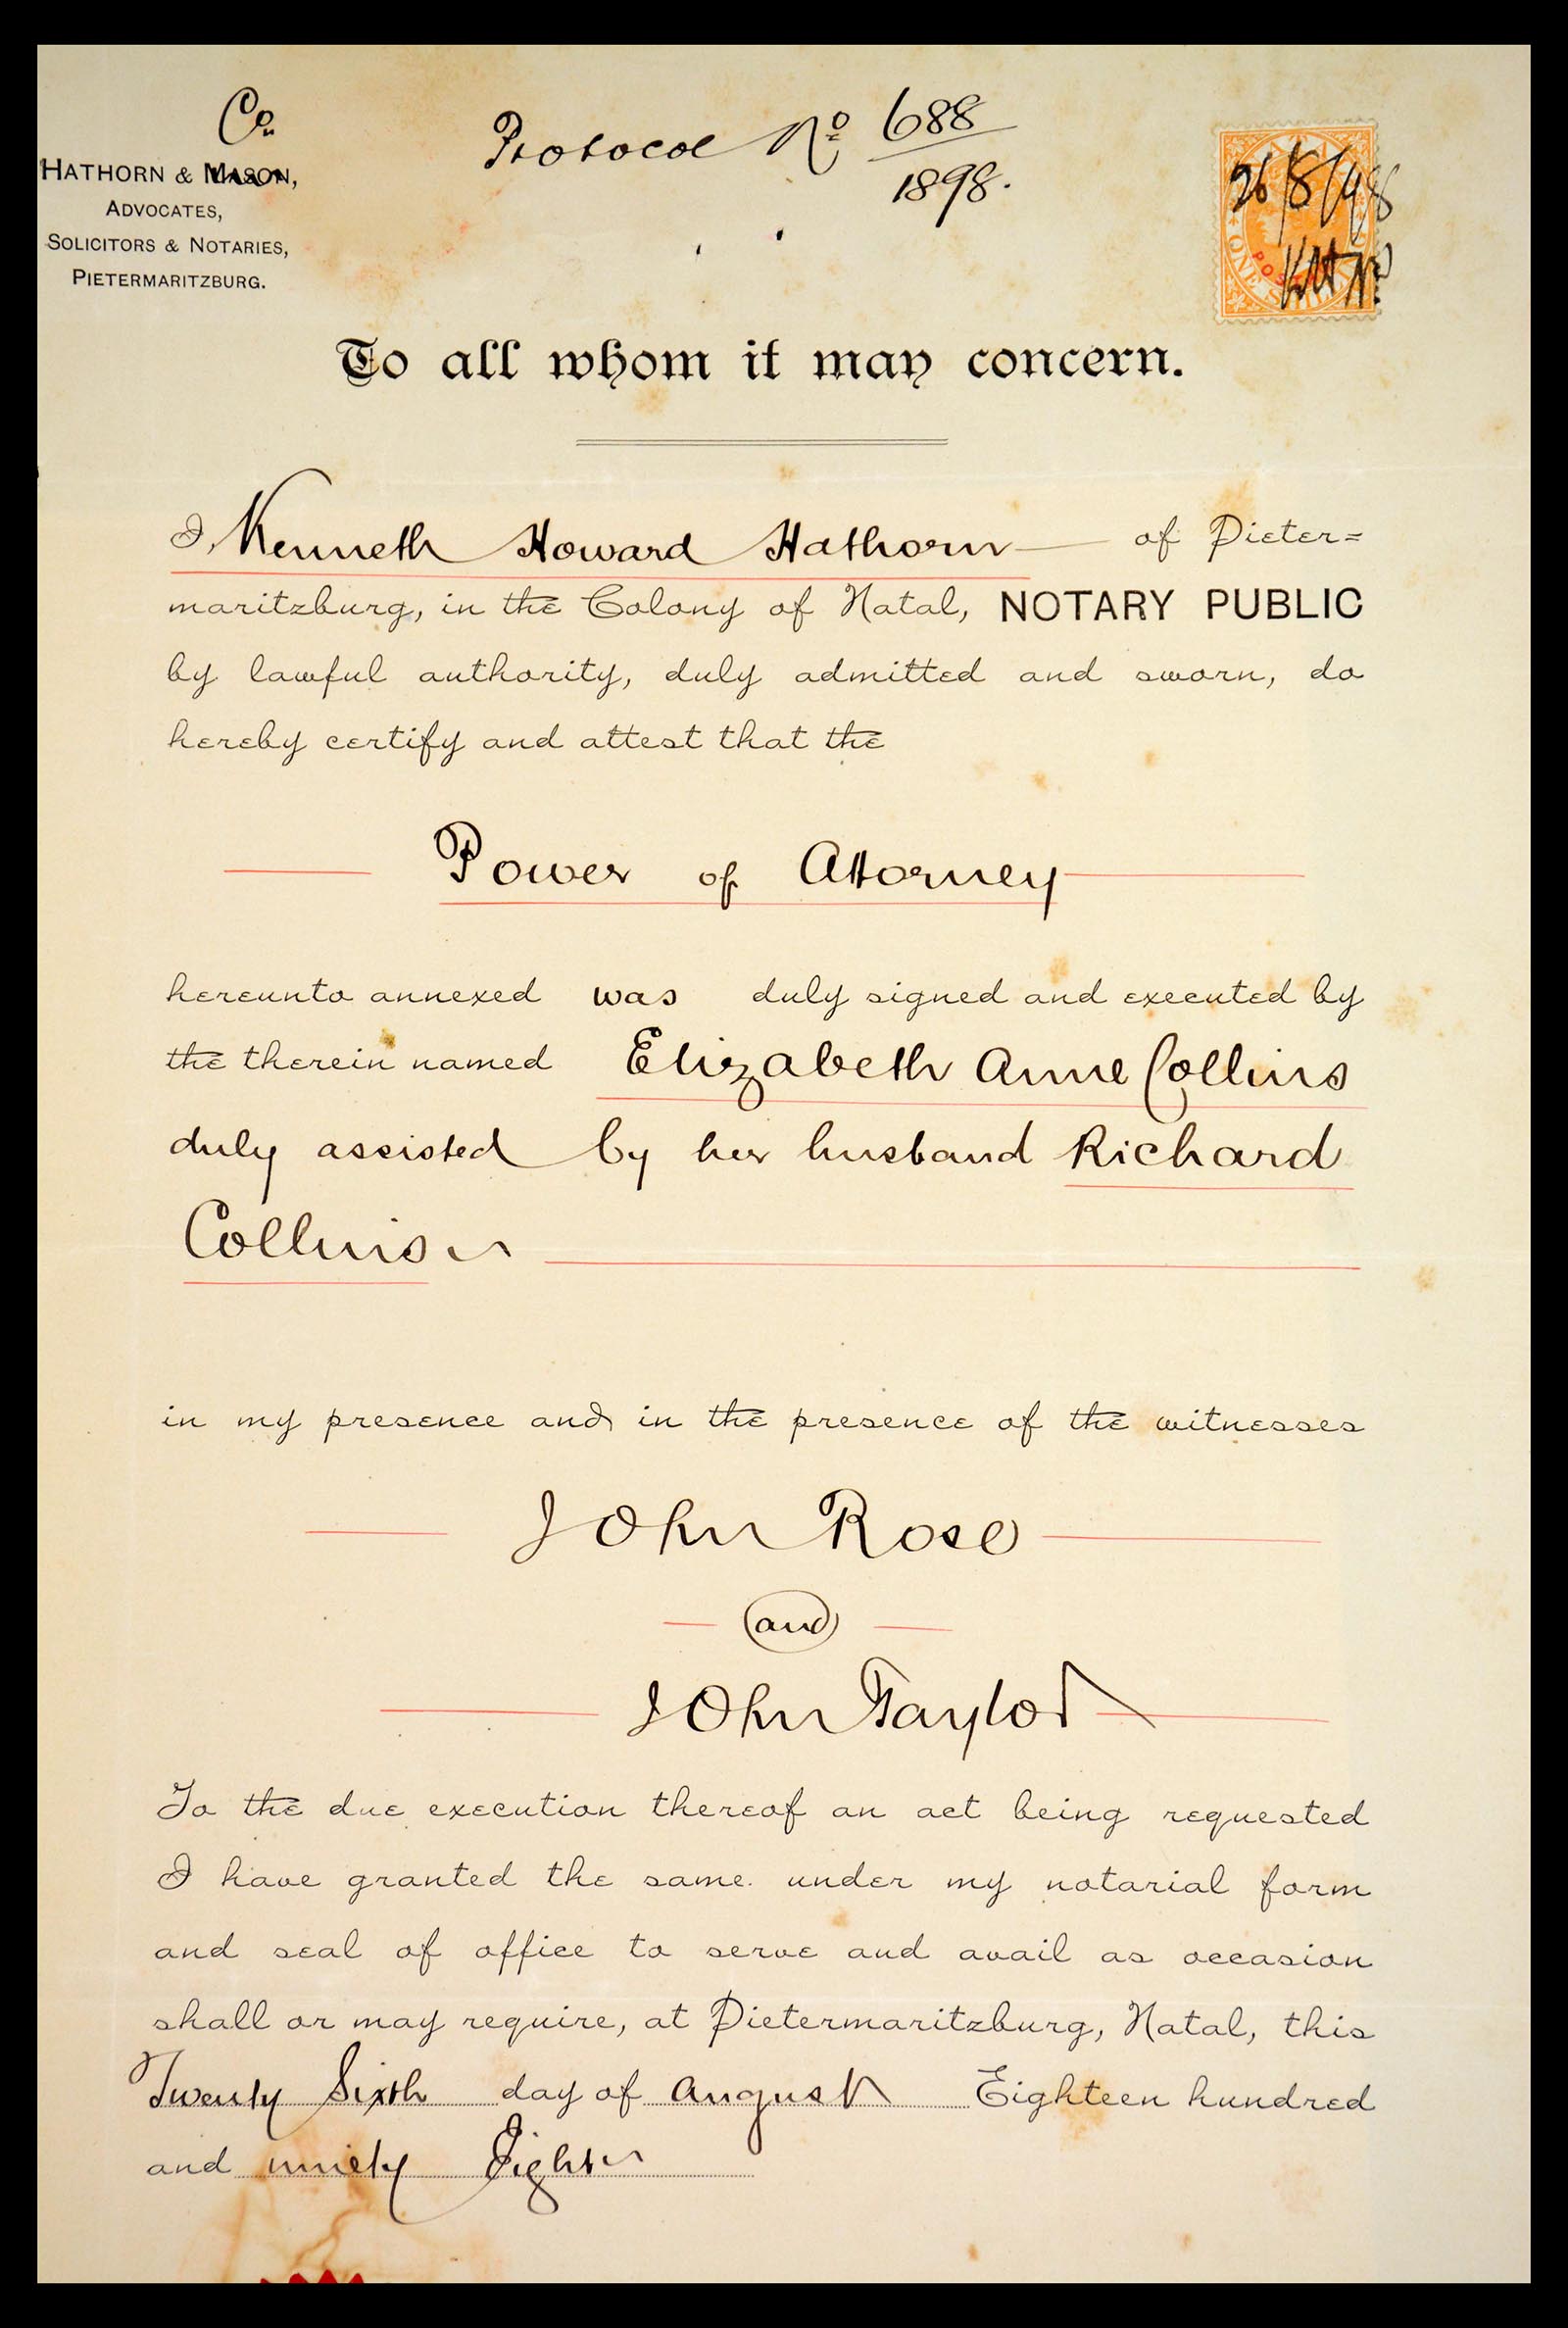 Co.
HATHORN & MASON,
ADVOCATES,
SOLICITORS & NOTARIES,
PIETERMARITZBURG.
Protocol No 688
1898.
26/8/98
ONE SHILLING
To all whom it may concern.
I, Kenneth Howard Hathorn of Pieter=
maritzburg, in the Colony of Natal, NOTARY PUBLIC
by lawful authority, duly admitted and sworn, do
hereby certify and attest that the
Power of Attorney
hereunto annexed was duly signed and executed by
the therein named Elizabeth Anne Collins
duly assisted by her husband Richard
Collins
in my presence and in the presence of the witnesses
John Rose
and
John Taylor
To the due execution thereof an act being requested
I have granted the same under my notarial form
and seal of office to serve and avail as occasion
shall or may require, at Pietermaritzburg, Natal, this
Twenty Sixth day of August Eighteen hundred
and ninety Eight